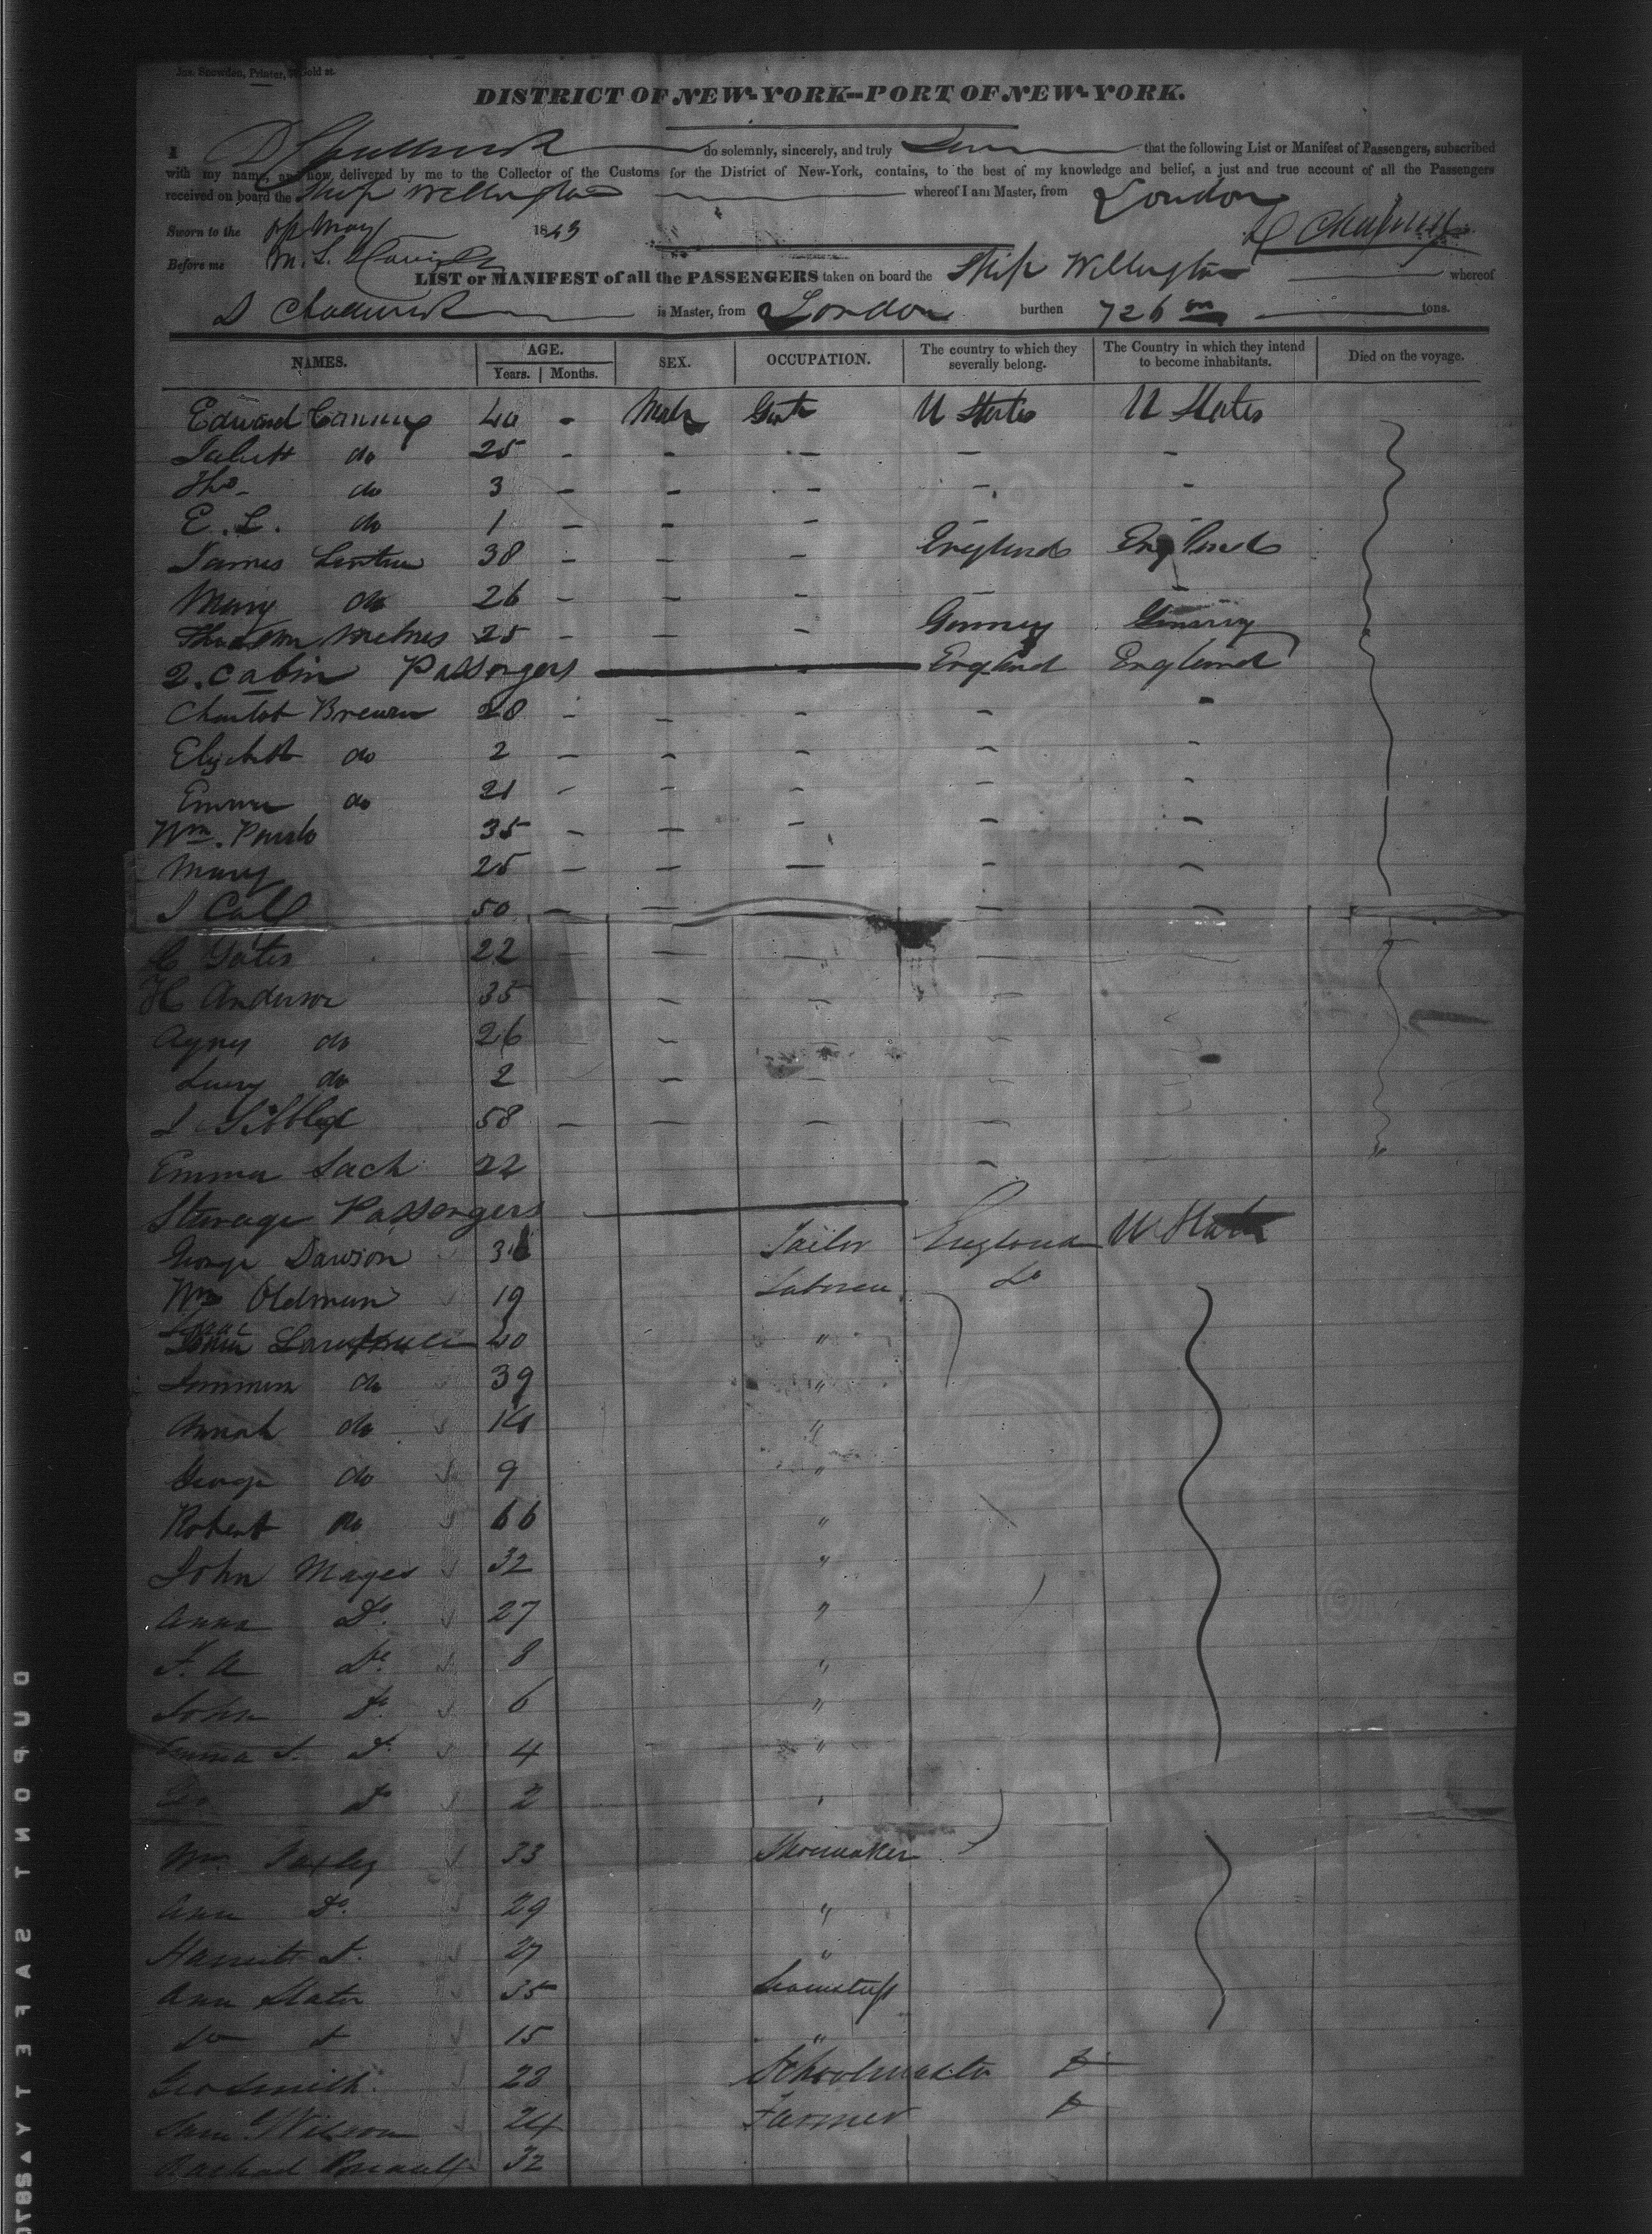 Jos. Snowden, Printer, Gold st.
DISTRICT OF NEW-YORK--PORT OF NEW-YORK.
I D Chadwick do solemnly, sincerely, and truly that the following List or Manifest of Passengers, subscribed
with my name, and now delivered by me to the Collector of the Customs for the District of New-York, contains, to the best of my knowledge and belief, a just and true account of all the Passengers
received on board the Ship Wellington whereof I am Master, from London
Sworn to the May 1843 D Chadwick
Before me
LIST or MANIFEST of all the PASSENGERS taken on board the Ship Wellington whereof
D Chadwick is Master, from London burthen 726 tons.
NAMES. AGE. Years. Months. SEX. OCCUPATION. The country to which they severally belong. The Country in which they intend to become inhabitants. Died on the voyage.
Edward 40 - Male Gent U States U States
do 25 - - - - -
Tho. do 3 - - - - -
E. L. do 1 - - - - -
James 38 - - - England England
Mary do 26 - - -
25 - - - Germany Germany
2. Cabin Passengers England England
Brewer 28 - - - - -
Elizabeth do 2 - - - - -
Emma do 21 - - - - -
Wm. 35 - - - - -
Mary 25 - - - - -
50 - - - - -
C Yates 22 - - - - -
H Anderson 35 - - -
Agnes do 26 - -
Lucy do 2 - - -
58 - - - -
Emma Sach 22 -
Steerage Passengers
George Dawson Tailor England U States
Wm Oldman 19 Laborer Do
Isaac 40 "
do 39 "
do "
George do 9 "
Robert do "
John Mayes 32 "
Anna Do. 27 "
F. A Do. 8 "
John Do. 6 "
Emma S. Do. 4 "
Do Do 2 "
Wm. 33 Shoemaker
Ann Do. 29 "
Harriett D. 27 "
Ann Slater 35 Seamstress
Do D 15 "
Geo Smith 28 Schoolmaster D
Saml Wilson 24 Farmer D
Rachael 32